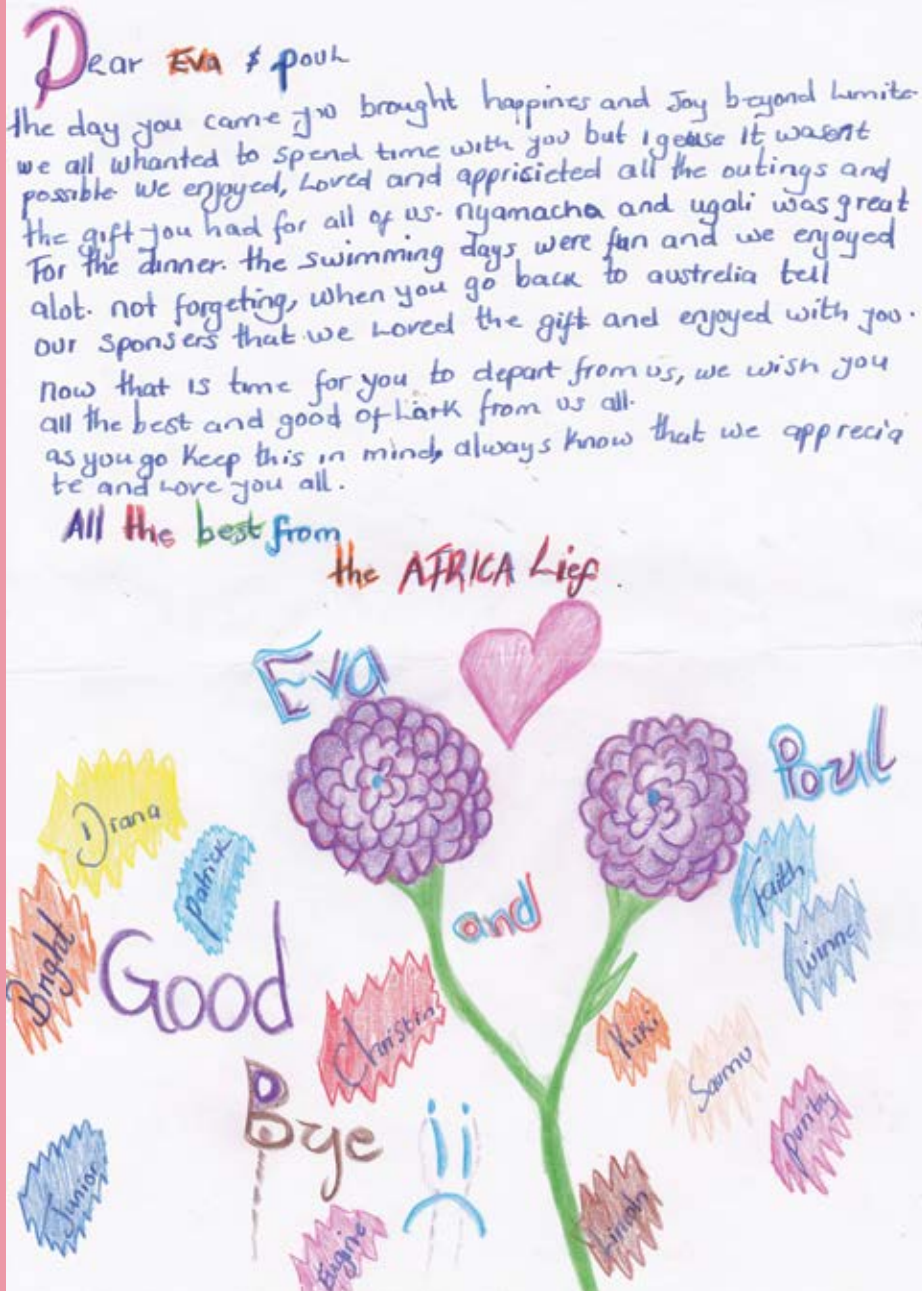 Dear Eva & Poul
the day you came you brought happines and Joy beyond Limite
we all whanted to spend time with you but I gease it wasent
possible we enjoyed, Loved and apprisicted all the outings and
the gift you had for all of us. nyamacha and ugali was great
For the dinner. the swimming days were fun and we enjoyed
alot. not forgeting, when you go back to austrelia tell
our sponsers that we Loved the gift and enjoyed with you.
now that is time for you to depart from us, we wish you
all the best and good of Lark from us all.
as you go Keep this in mind, always know that we apprecia
te and Love you all.
All the best from
the AFRICA Lief.
Eva
Poul
Diana
Patrick
Faith
and
Bright
Winne
Good
Christin
Kiki
Saumu
Bye
Purity
Junior
Lincoln
Eugine